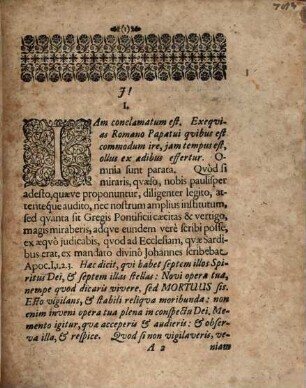 (1)
J!
I.
IAm conclamatum est, Exeqvi-
as Romano Papatui qvibus est
commodum ire, jam tempus est,
ollus ex ædibus effertur. O-
mnia sunt parata. Qvòd si
miraris, quæso, nobis paulisper
adesto, quæve proponuntur, diligenter legito, at-
tenteque audito, nec nostrum amplius institutum,
sed quanta sit Gregis Pontificii cæcitas & vertigo,
magis miraberis, adque eundem verè scribi posse,
ex æqvò judicabis, quod ad Ecclesiam, quæ Sardi-
bus erat, ex mandato divinò Johannes scribebat
Hæc dicit, qvi habet septem illos Spi-
ritus Dei, & septem illas stellas: Novi opera tua,
nempe quòd dicaris vivere, sed MORTUUS sis.
Esto vigilans, & stabili reliqva moribunda: non
enim inveni opera tua plena in conspectu Dei, Me-
mento igitur, qua acceperis & audieris: & obser-
va illa, & respice. Qvod si non vigilaveris, ve-
A 2 niam